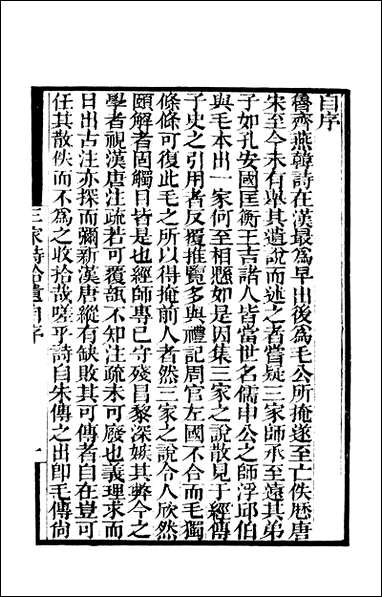 自序
魯齊燕韓詩在漢最爲早出後爲毛公所掩遂至亡佚歷唐
宋至今未有舉其遺說而述之者嘗疑三家師承至遠其弟
子如孔安國匡衡王吉諸人皆當世名儒申公之師浮邱伯
與毛本出一家何至相懸如是因集三家之說散見于經傳
子史之引用者反覆推覽多與禮記周官左國不合而毛獨
條條可復此毛之所以得掩前人者然三家之說令人欣然
頤解者固觸目皆是也經師專己守殘昌黎深嫉其弊今之
學者視漢唐注疏若可覆瓿不知注疏未可廢也義理求而
日出古注亦探而彌新漢唐縱有缺敗其可傳者自在豈可
任其散佚而不爲之收拾哉嗟乎詩自朱傳之出卽毛傳尙
三家詩拾遺自序
一